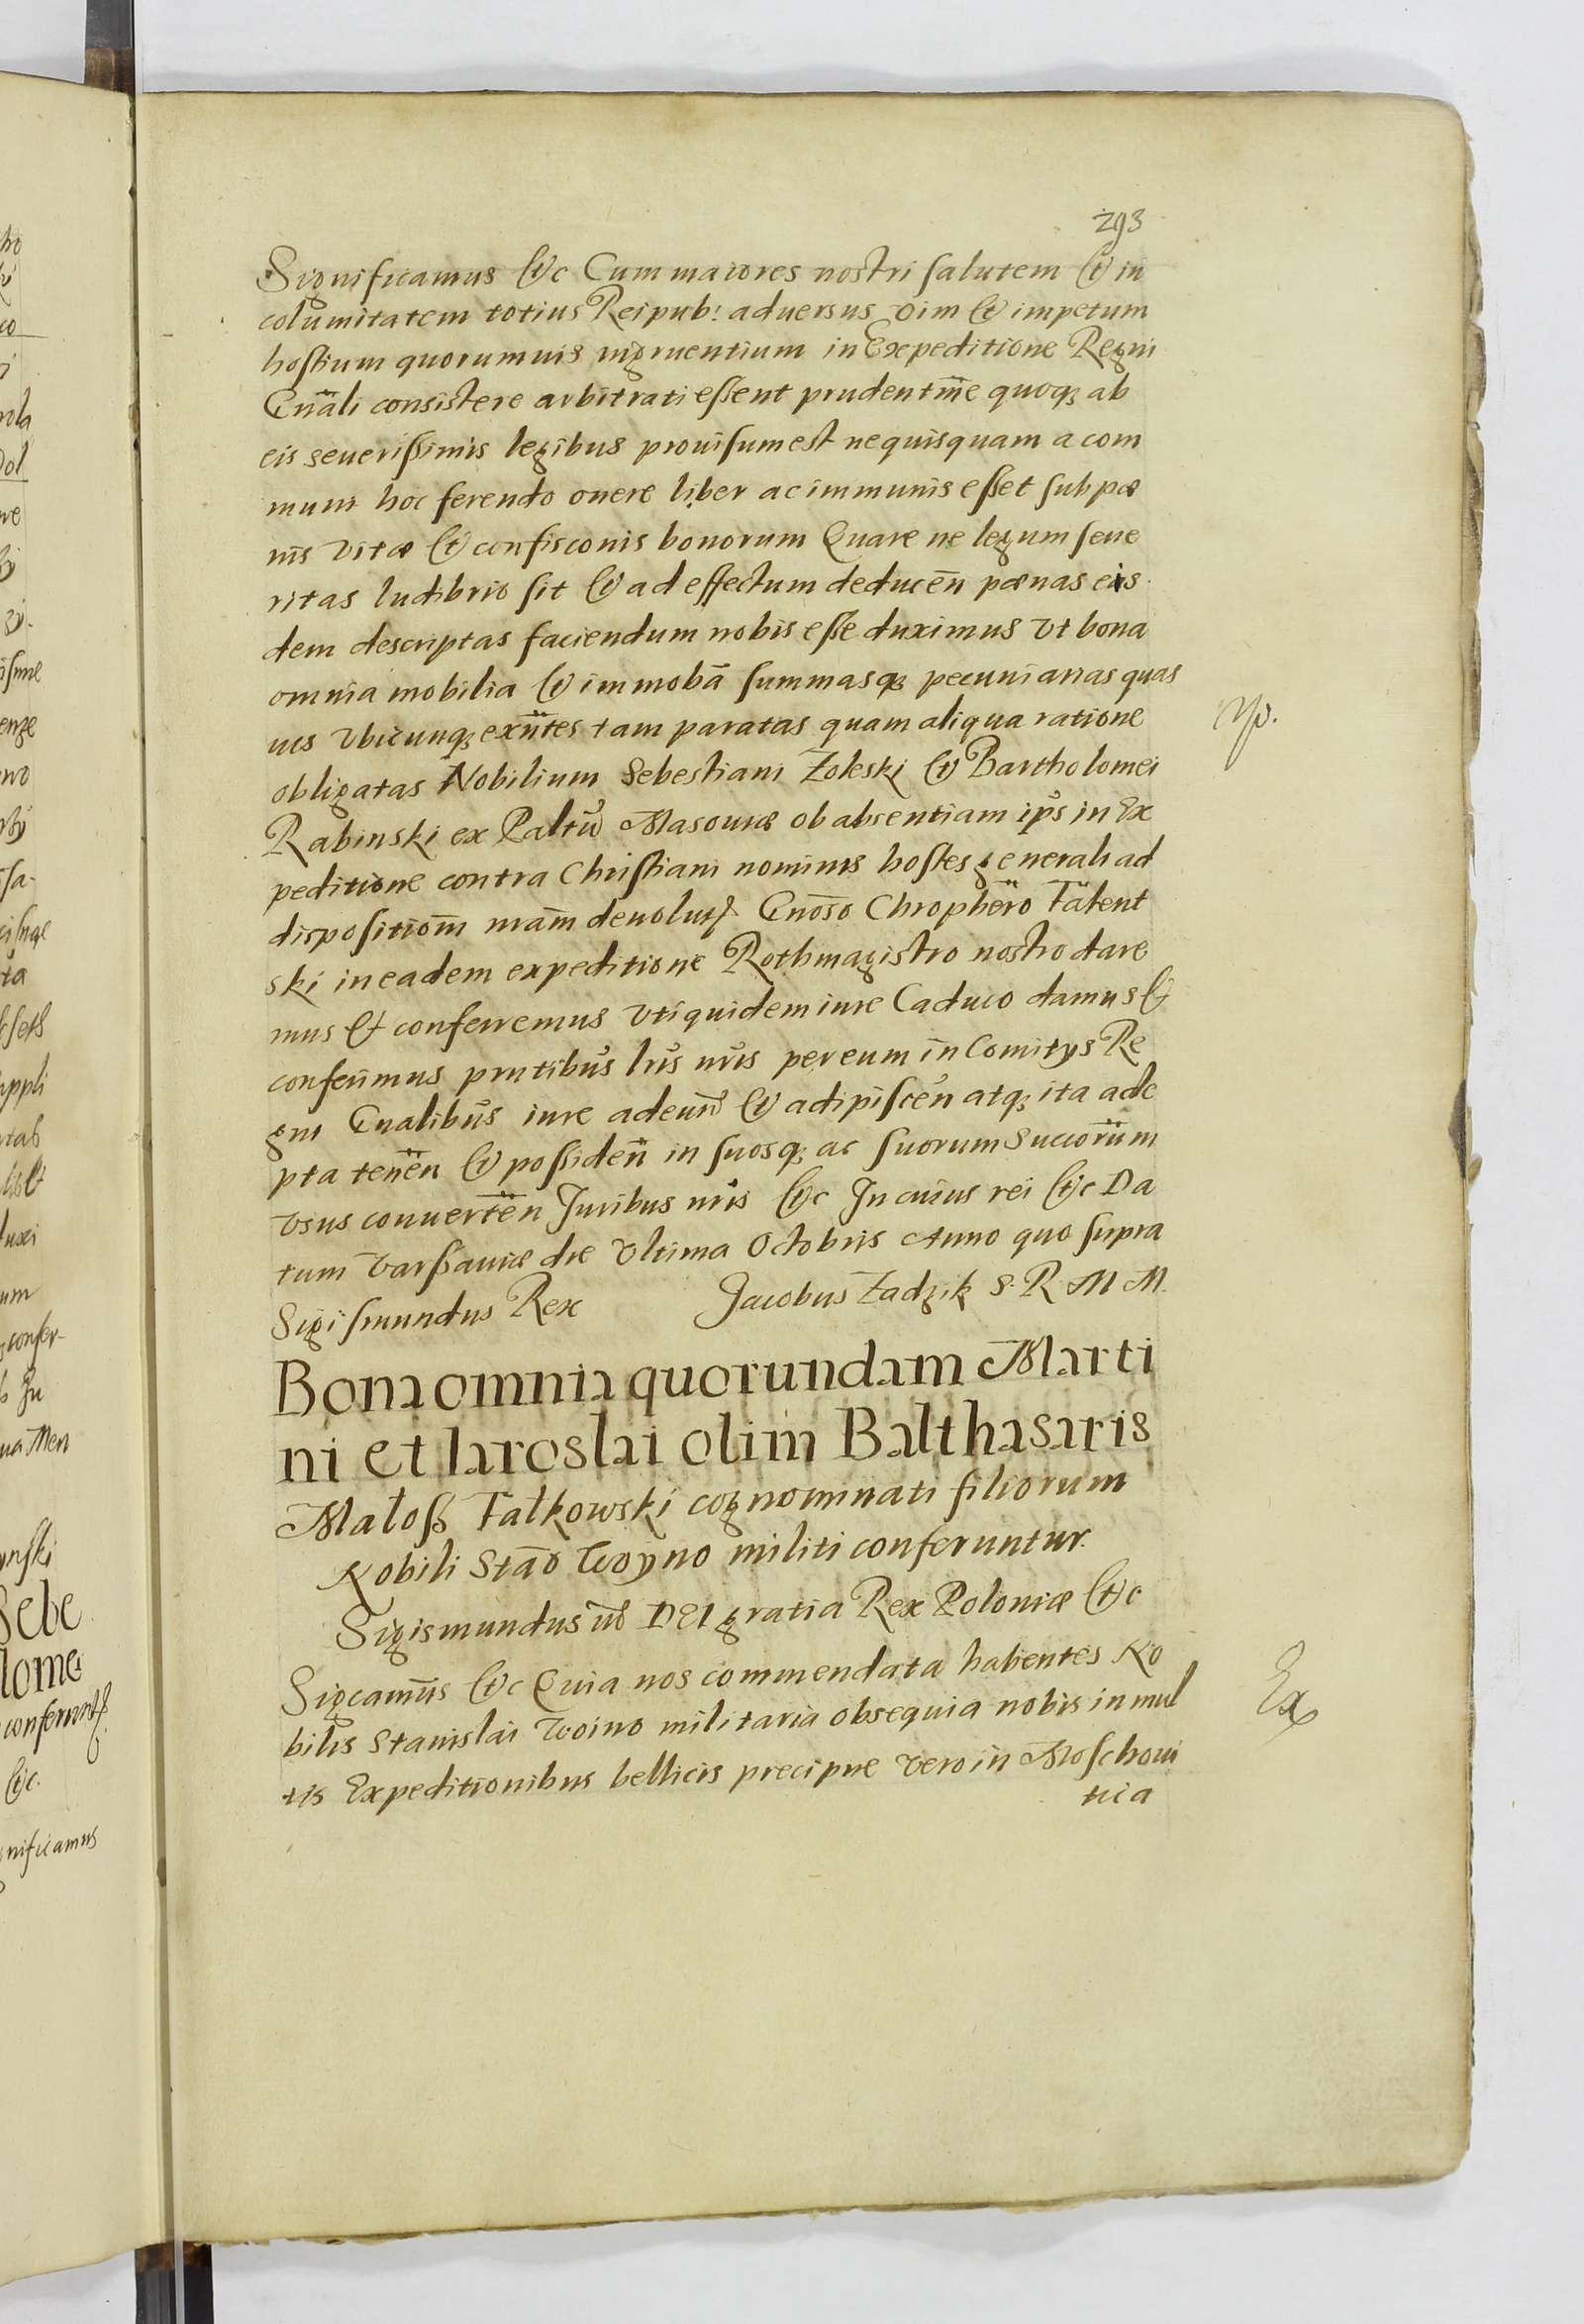 293
Significamus &c Cum maiores nostri salutem & in
columitatem totius Reipub: aduersus vim & impetum
hostium quorumuis ingruentium in Expeditione Regni
Gnãli consistere arbitrati essent prudentme quoq; ab
eis seuerissimis legibus prouisum est ne quisquam a com
muni hoc ferendo onere liber ac immunis esset sub pœ
nis vitæ & confisconis bonorum Quare ne legum seue
ritas ludibrio sit & ad effectum deducen̄ pœnas eis
dem descriptas faciendum nobis esse duximus vt bona
omnia mobilia & immobã summasq; pecuniarias quas
uis vbicunq; exñtes tam paratas quam aliqua ratione
obligatas Nobilium Sebestiani Zoleski & Bartholomei
Rabinski ex Paltu Masouiæ ob absentiam ips in Ex
peditione contra Christiani nominis hostes generali ad
dispositiom nram deuolut Gnoso Chrophero Talent
ski in eadem expeditione Rothmagistro nostro dare
mus & conferremus vti quidem iure Caduco damus &
conferimus pntibus lris nris per eum in Comitijs Re
gni Gnalibus iure adeun & adipiscen atq; ita ade
pta tenen & possiden in suosq; ac suorum Succorum
vsus conuerten Juribus nris &c In cuius rei &c Da
tum Varssauiæ die vltima Octobris Anno quo supra
Sigismundus Rex Jacobus Zadzik S. R M M.
Bona omnia quorundam Marti
ni et Iaroslai olim Balthasaris
Małoss Falkowski cognominati filiorum
Nobili Stao Woyno militi conferuntur.
Sigismundus DEI gratia Rex Poloniæ &c
Sigcamus &c Quia nos commendata habentes No
bilis Stanislai Woino militaria obsequia nobis in mul
tis Expeditionibus bellicis precipue vero in Moschoui
tica
Ex